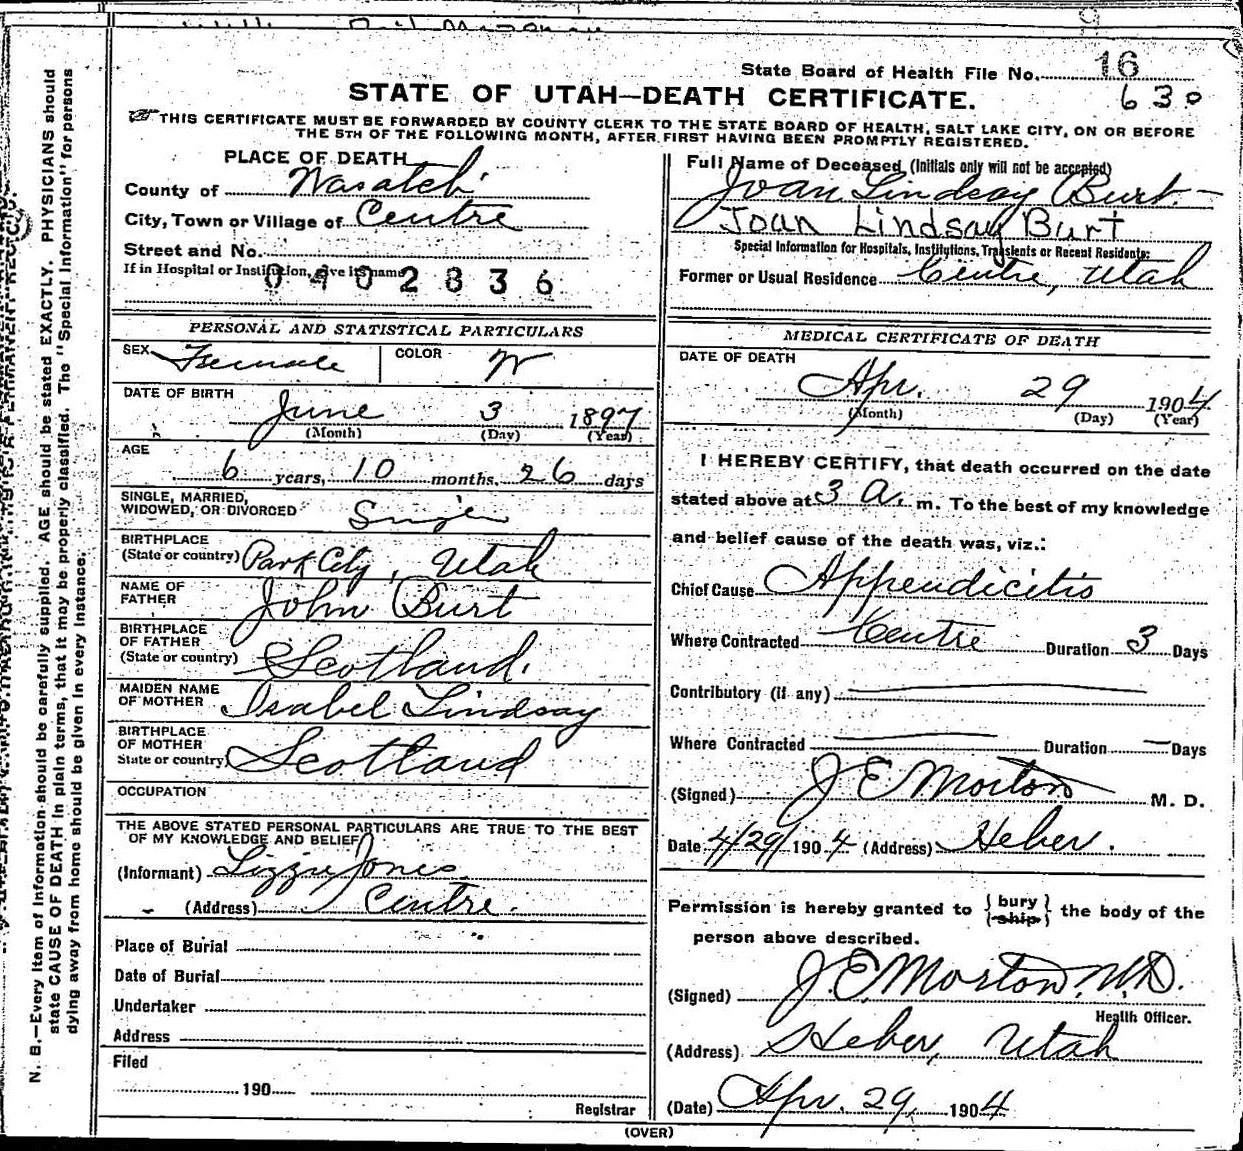 State Board of Health File No. 16
630
STATE OF UTAH—DEATH CERTIFICATE.
THIS CERTIFICATE MUST BE FORWARDED BY COUNTY CLERK TO THE STATE BOARD OF HEALTH, SALT LAKE CITY, ON OR BEFORE
THE 5TH OF THE FOLLOWING MONTH, AFTER FIRST HAVING BEEN PROMPTLY REGISTERED.
PLACE OF DEATH
County of Wasatch
City, Town or Village of Centre
Street and No.
If in Hospital or Institution, give its name
0402836
PERSONAL AND STATISTICAL PARTICULARS
SEX Female COLOR W
DATE OF BIRTH
June 3 1897
(Month) (Day) (Year)
AGE
6 years, 10 months, 26 days
SINGLE, MARRIED,
WIDOWED, OR DIVORCED Single
BIRTHPLACE
(State or country) Park City, Utah
NAME OF
FATHER John Burt
BIRTHPLACE
OF FATHER
(State or country) Scotland.
MAIDEN NAME
OF MOTHER Isabel Lindsay
BIRTHPLACE
OF MOTHER
State or country) Scotland
OCCUPATION
THE ABOVE STATED PERSONAL PARTICULARS ARE TRUE TO THE BEST
OF MY KNOWLEDGE AND BELIEF
(Informant) Lizzie Jones.
(Address) Centre.
Place of Burial
Date of Burial
Undertaker
Address
Filed
190
Registrar
Full Name of Deceased (Initials only will not be accepted)
Joan Lindsay Burt.
Joan Lindsay Burt
Special Information for Hospitals, Institutions, Transients or Recent Residents:
Former or Usual Residence Centre, Utah
MEDICAL CERTIFICATE OF DEATH
DATE OF DEATH
Apr. 29 1904
(Month) (Day) (Year)
I HEREBY CERTIFY, that death occurred on the date
stated above at 3 A. m. To the best of my knowledge
and belief cause of the death was, viz.:
Chief Cause Appendicitis
Where Contracted Centre Duration 3 Days
Contributory (if any)
Where Contracted Duration — Days
(Signed) J E Morton M. D.
Date 4/29/1904 (Address) Heber.
Permission is hereby granted to {bury
{ship} the body of the
person above described.
(Signed) J. E. Morton, M.D.
Health Officer.
(Address) Heber, Utah
(Date) Apr. 29, 1904
(OVER)
N. B.—Every item of information should be carefully supplied. AGE should be stated EXACTLY. PHYSICIANS should
state CAUSE OF DEATH in plain terms, that it may be properly classified. The "Special Information" for persons
dying away from home should be given in every instance.